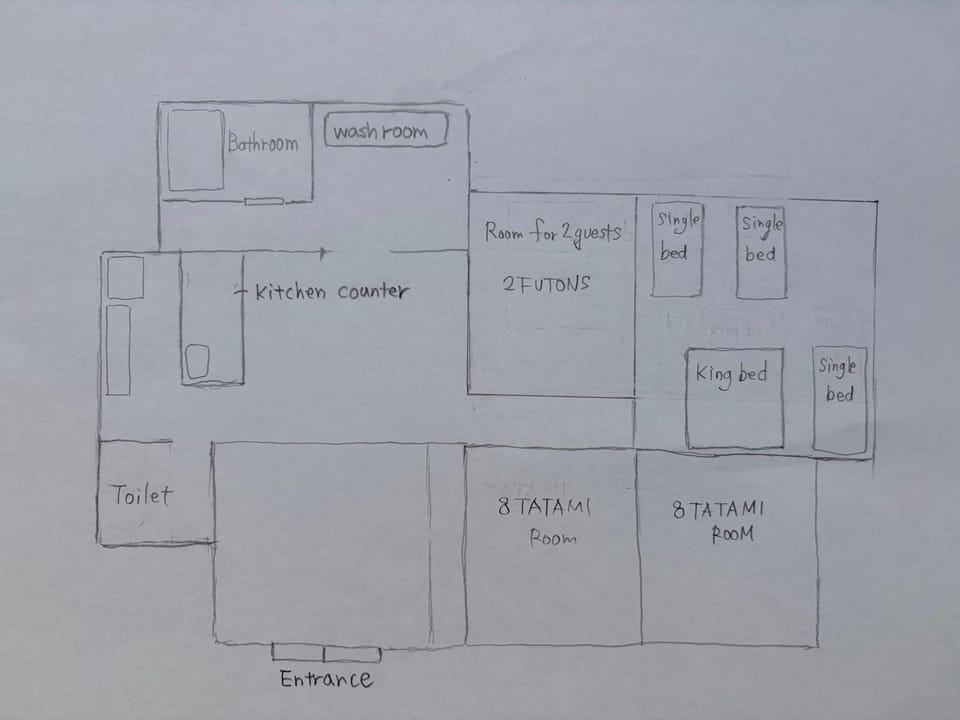 Bathroom
washroom
Room for 2 guests
2 FUTONS
Single
bed
Single
bed
Kitchen counter
King bed
Single
bed
Toilet
8 TATAMI
Room
8 TATAMI
ROOM
Entrance